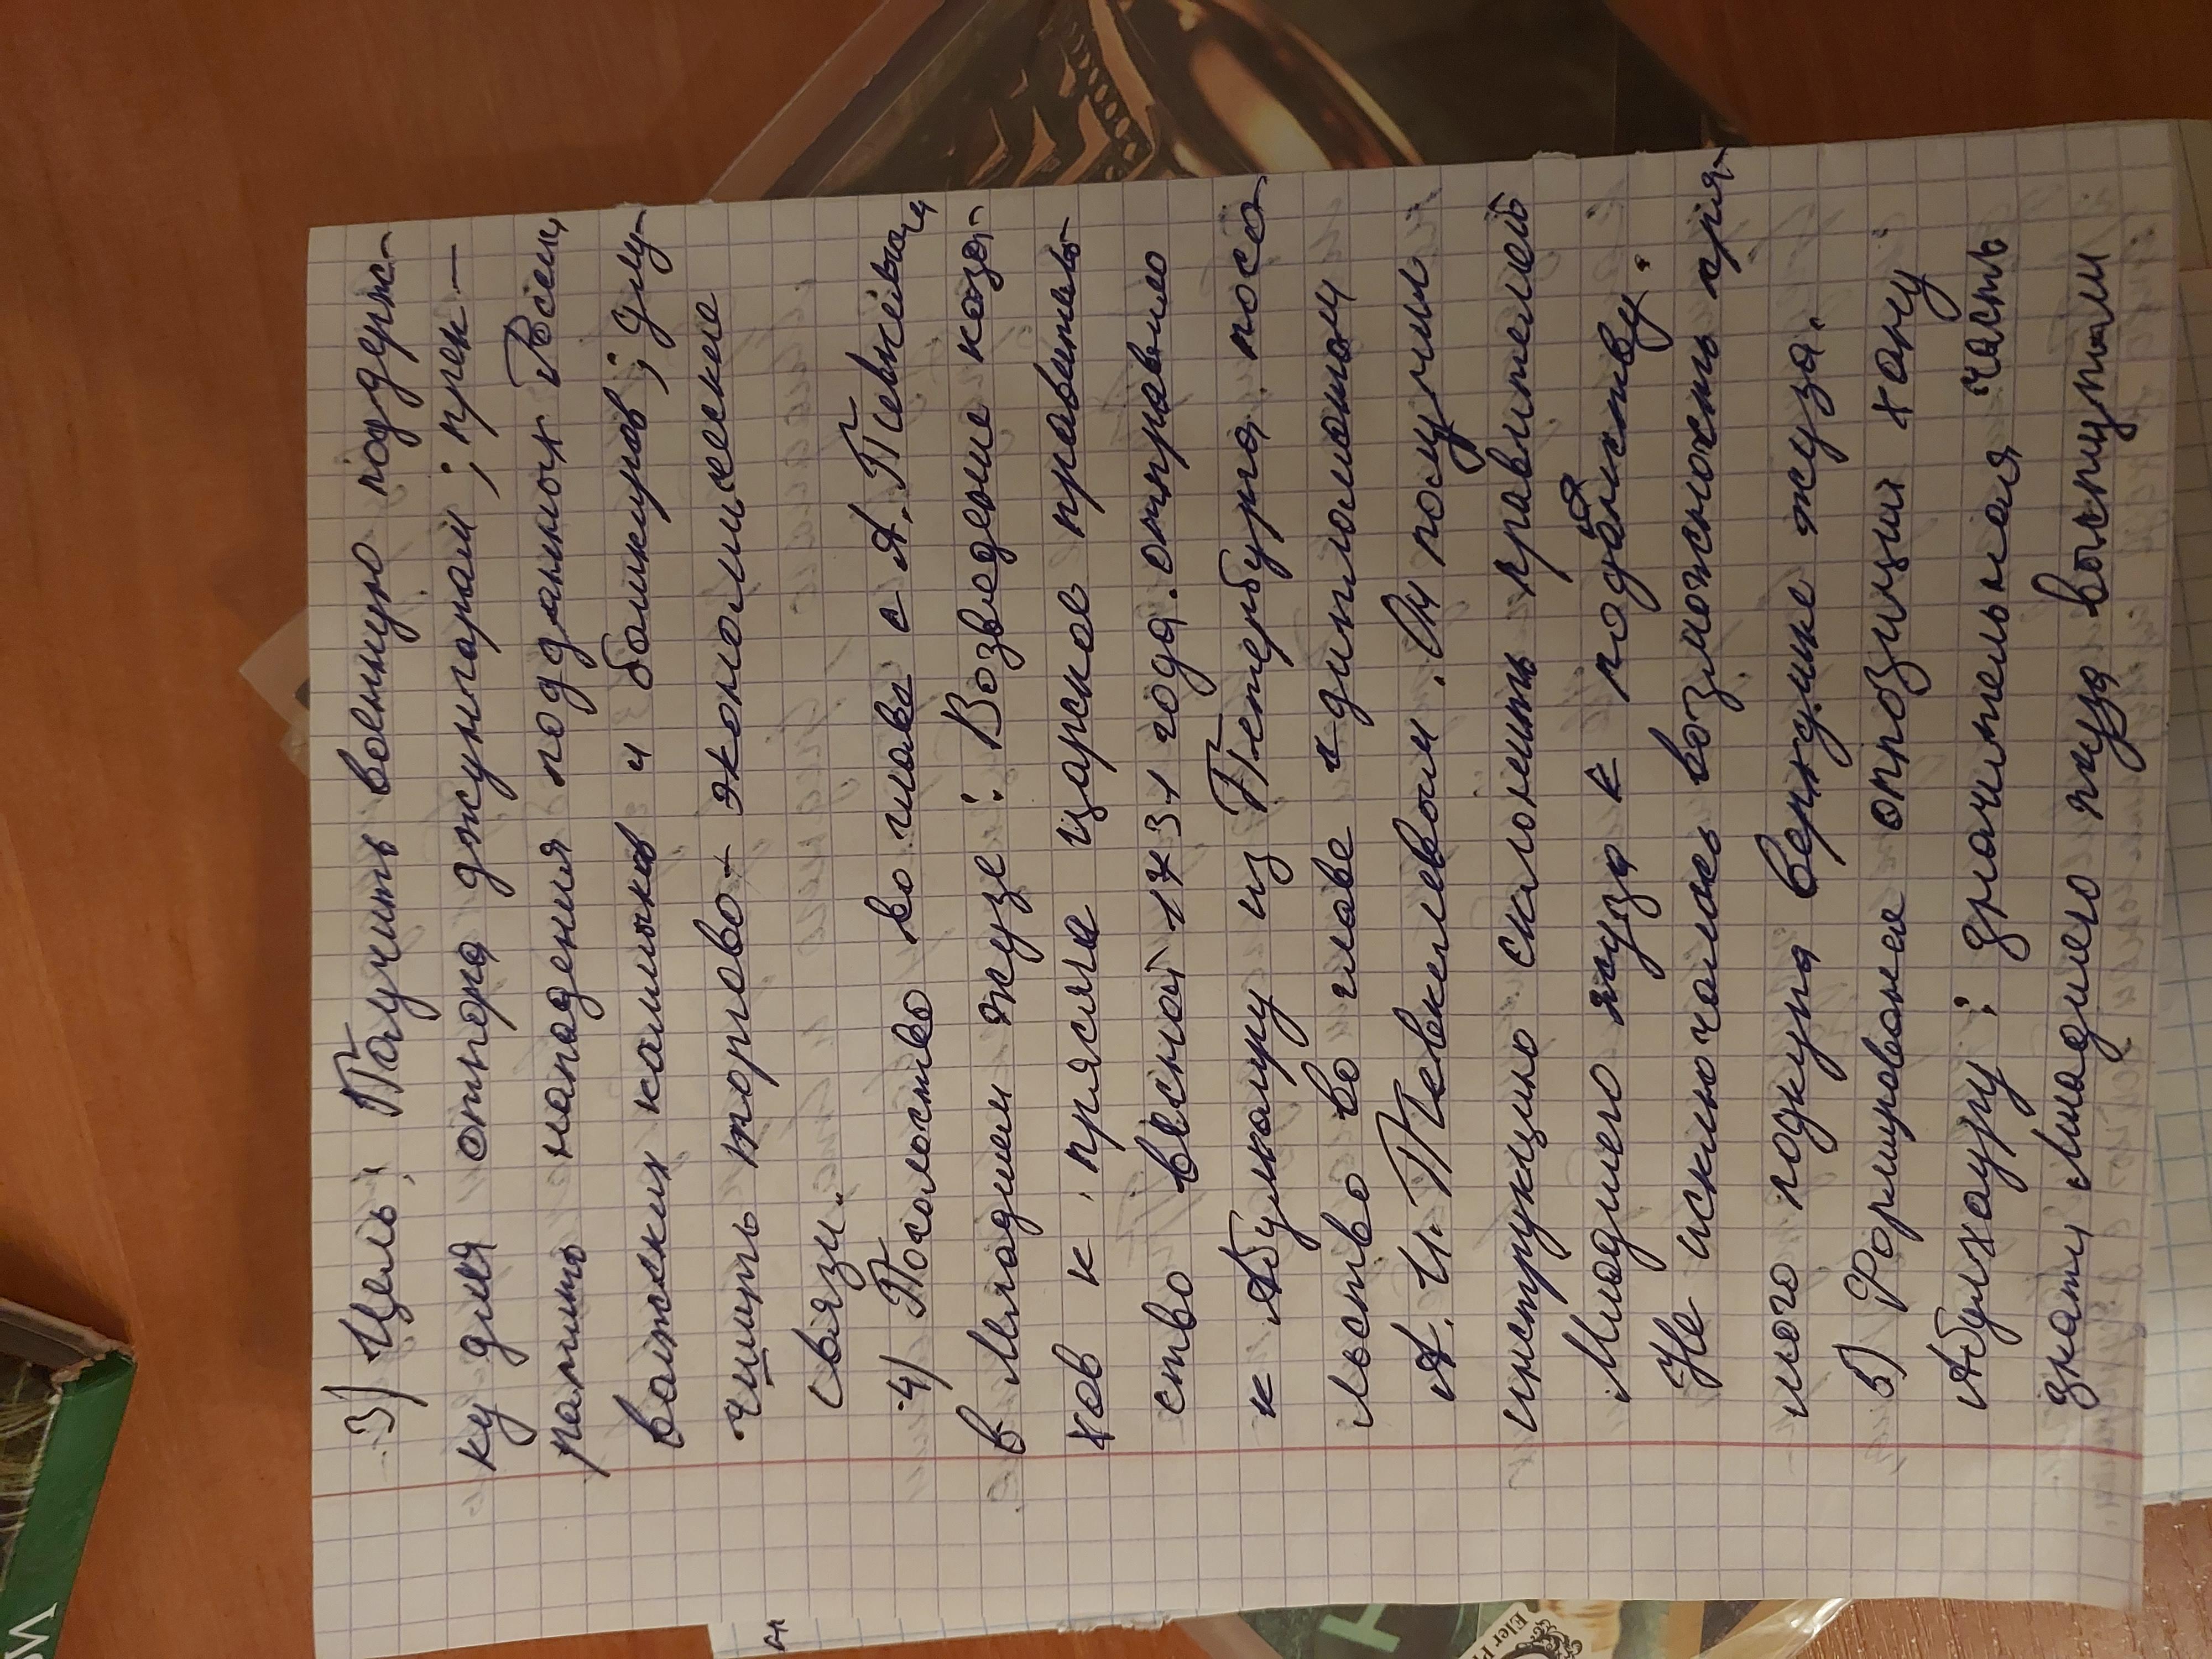 3) Цель: Получить военную поддерж-
ку для отпора джунгарам; прек-
ратить нападения подданных России
волжских калмыков и башкиров; улу-
чшить торгово-экономические
связи.
4) Посольство во главе с А. Тевкелевым
в Младшем жузе: Возведение каза-
ков к присяге царское правитель-
ство весной 1731 года. отправило
к Абулхаиру из Петербурга посо
льство во главе с дипломатом
А. И. Тевкелевым. Он получил
инструкцию склонить правителей
Младшего жуза к подданству.
Не исключалась возможность пря-
мого подкупа верхушке жуза.
5) Формирование оппозиции хану
Абулхаиру: значительная часть
знати Младшего жуза выступали